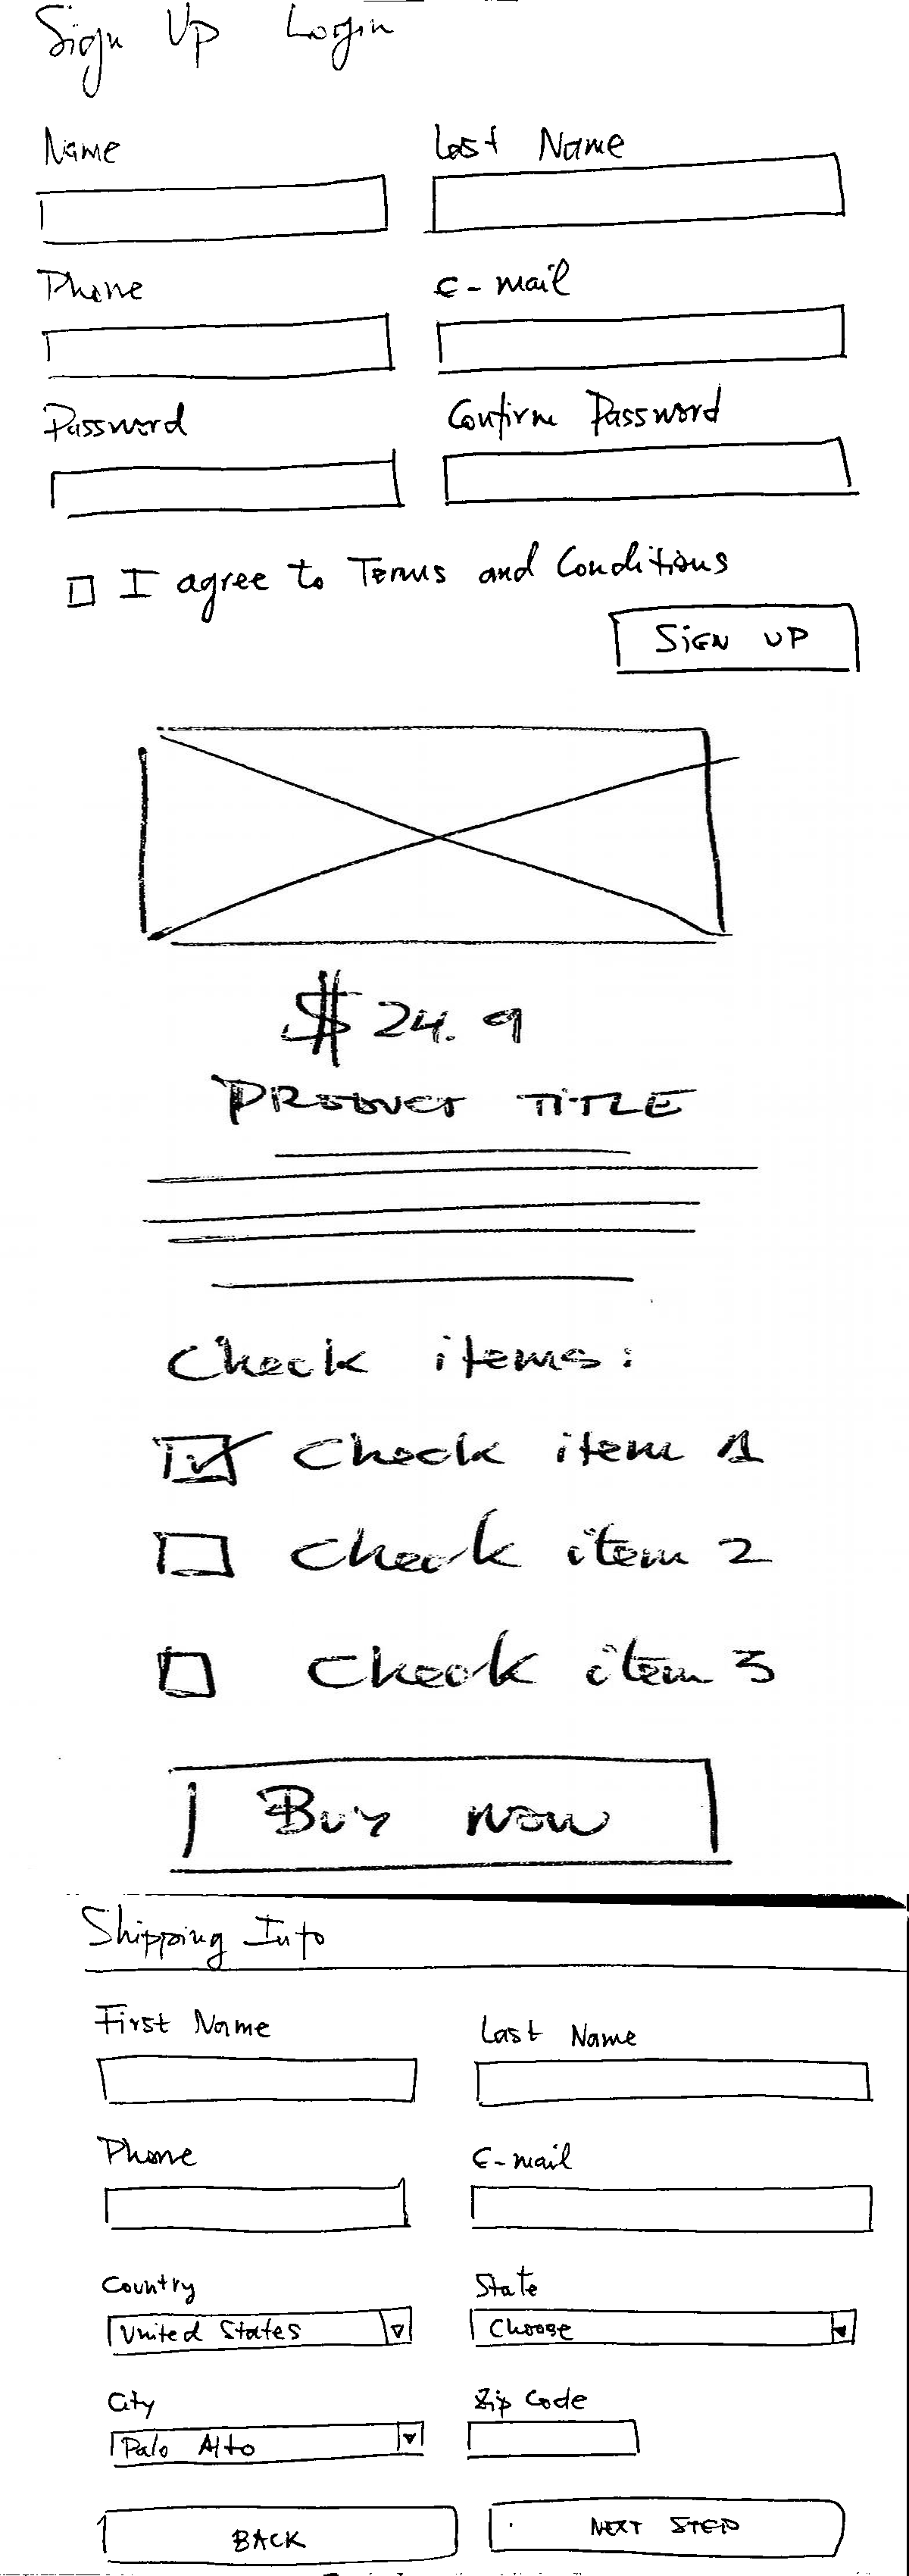 Sign Up Login
Name Last Name
Phone E-mail
Password Confirm Password
I agree to Terms and Conditions
SIGN UP
$24.9
PRODUCT TITLE
Check items:
Check item 1
Check item 2
Check item 3
Buy now
Shipping Info
First Name Last Name
Phone E-mail
Country State
United States Choose
City Zip Code
Palo Alto
BACK NEXT STEP